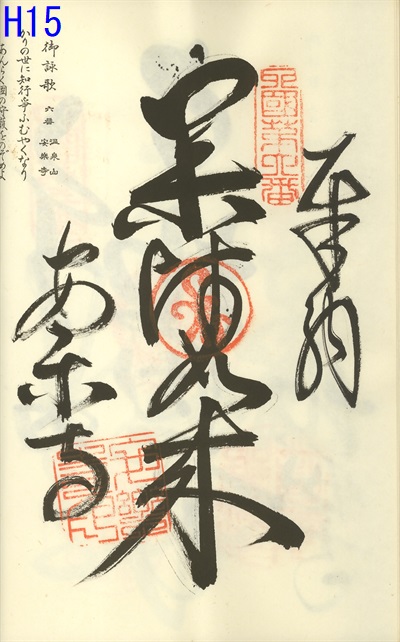 H15
奉納
四國第六番
薬師如来
安楽寺
御詠歌 六番 温泉山 安楽寺
かりの世に知行争ふむやくなり
あんらく國の守護をのぞめよ